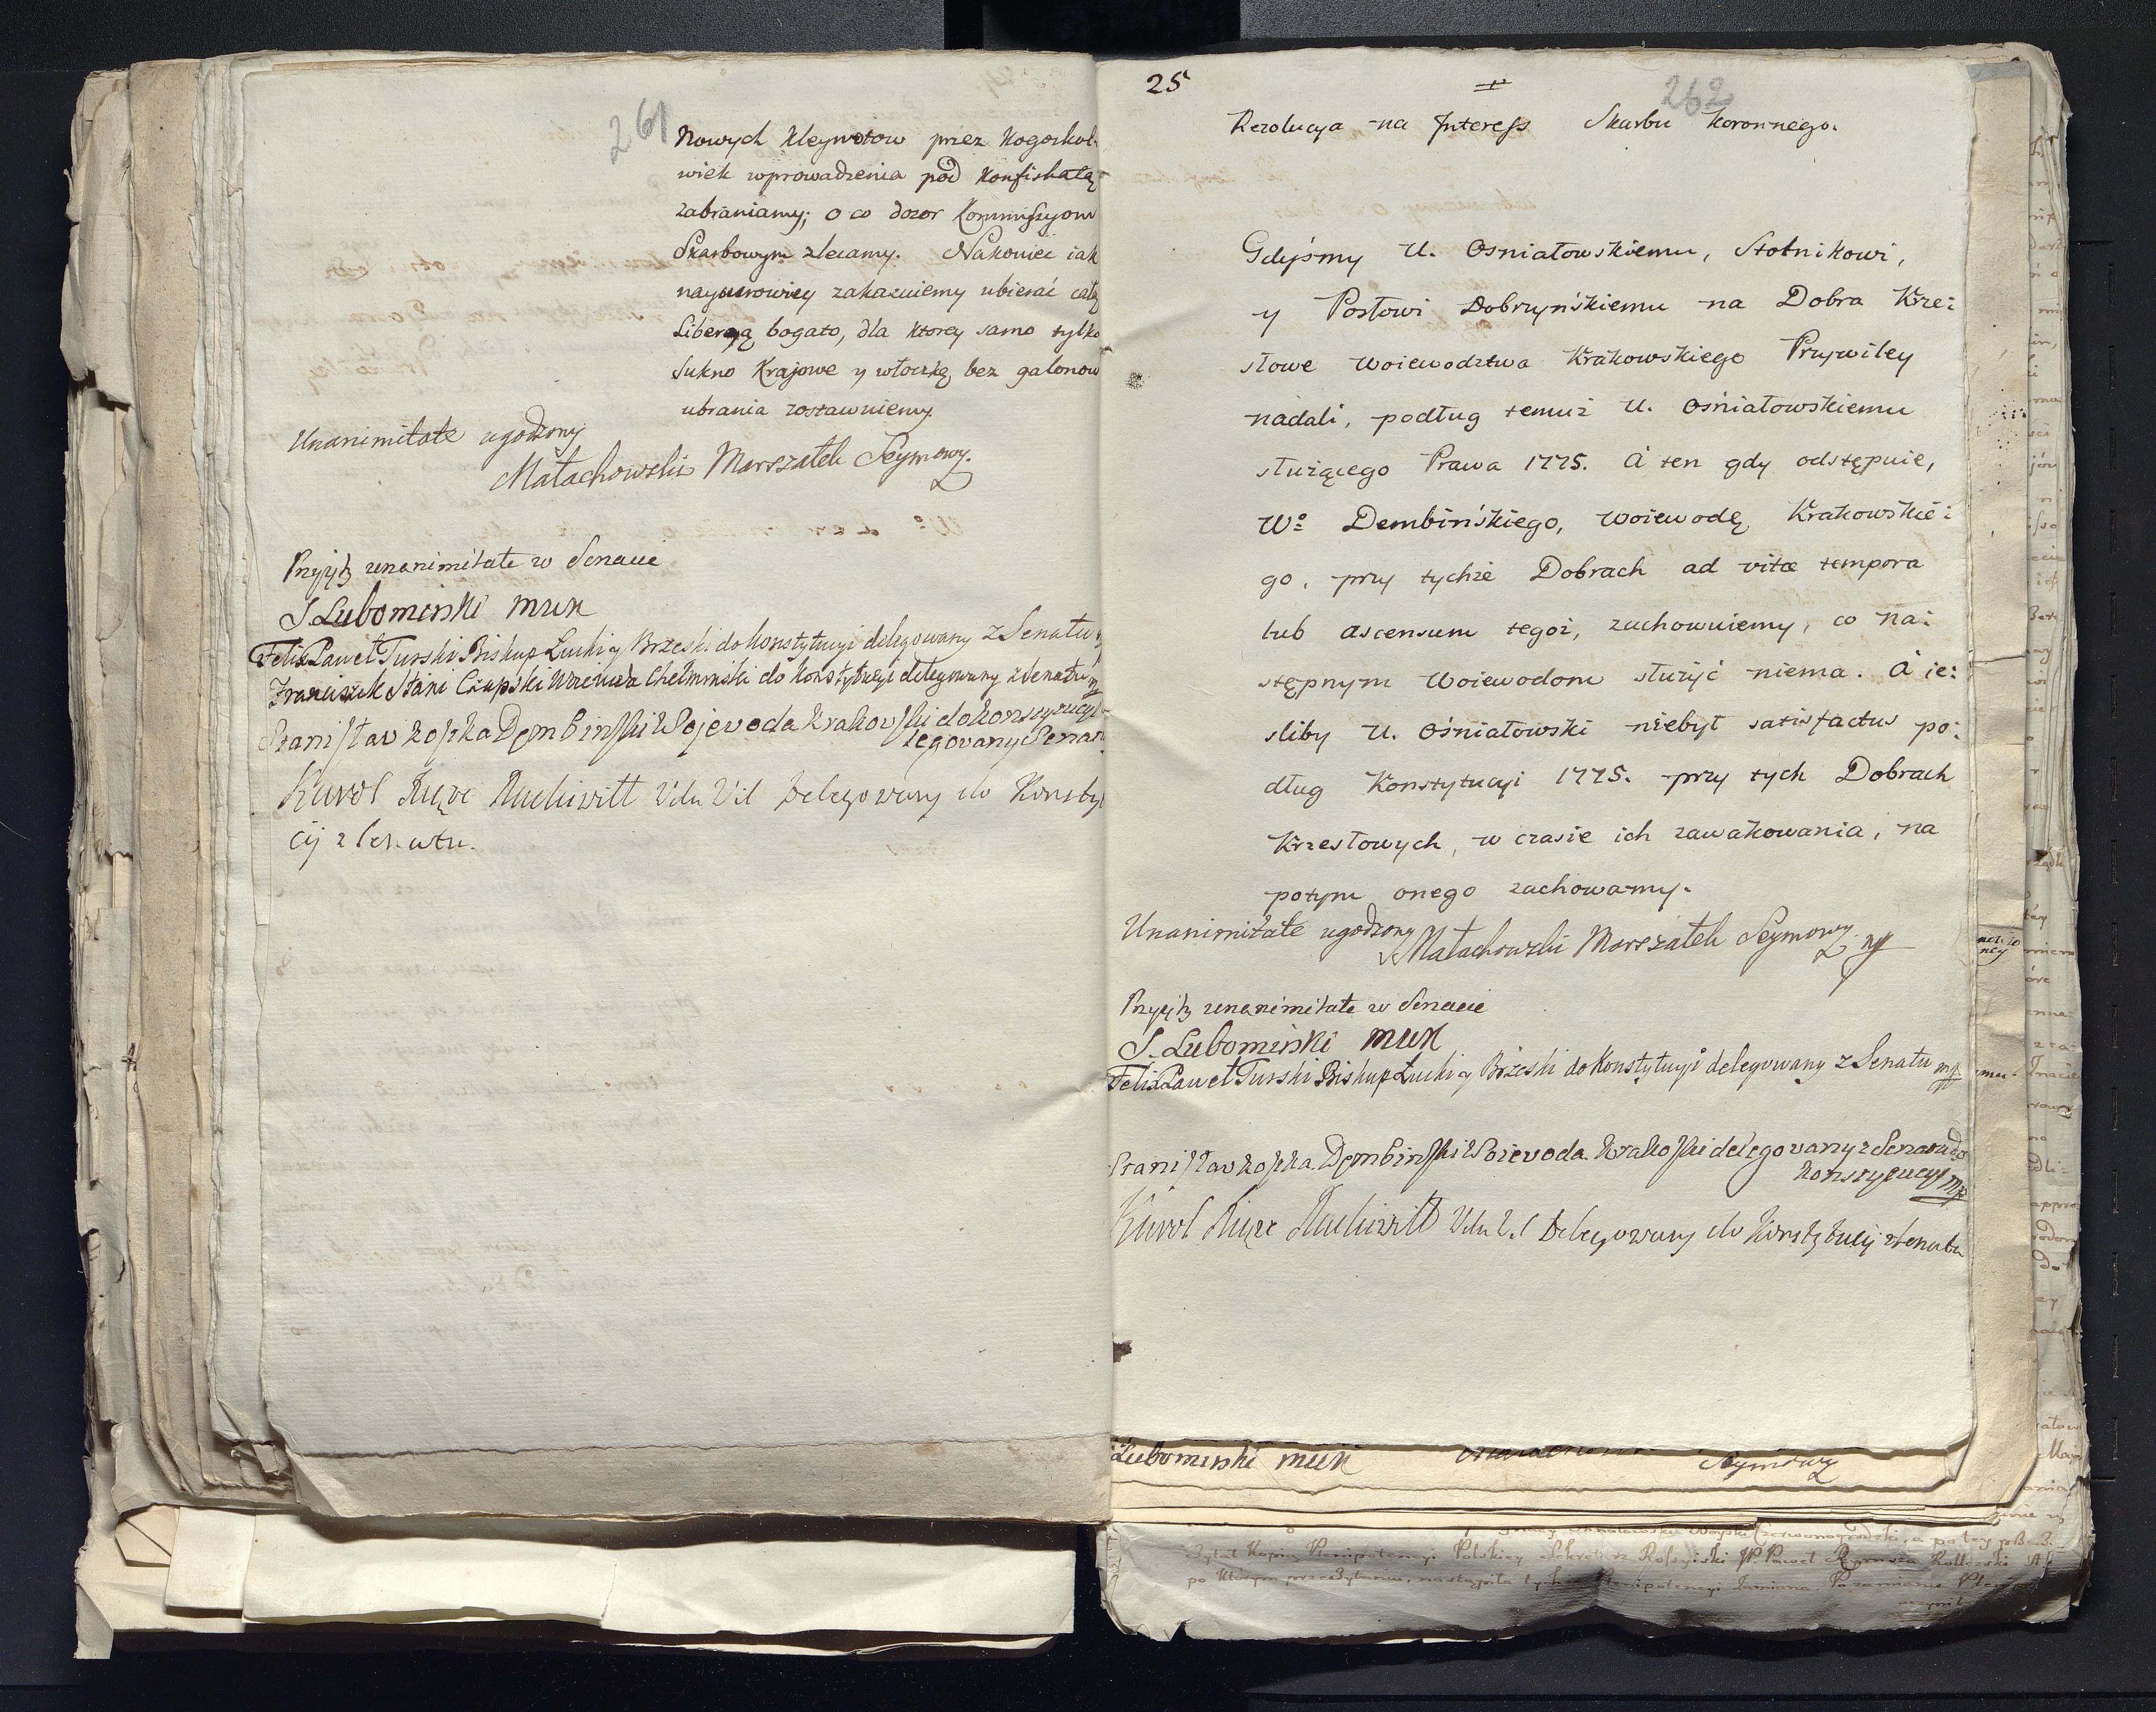 261
Nowych Kleynotow przez Kogoskol-
wiek wprowadzenia pod Konfiskatą
zabraniamy; o co dozor Kommissyom
Skarbowym zlecamy. Nakoniec iak
naysurowiey zakazuiemy ubierać całą
Liberyą bogato, dla ktorey samo tylko
Sukno Krajowe y włoczkę bez galonow
ubrania zostawuiemy.
Unanimitate ugodzony
Małachowski Marszałek Seymowy.
Przyięty unanimitate w Senacie
S Lubomirski MWK
Felix Paweł Turski Biskup Łucki y Brzeski do Konstytucyi delegowany z Senatu
Franciszek Stani Czapski Woiewoda Chełminski do Konstytucyi delegowany z Senatu
Stanisław Kostka Dembinski Wojewoda Krakowski do Konstytucyi
legowany Senat
Karol Xiąże Radziwiłł Wda Wil Delegowany do Konsty
cij z Senatu.
25
262
Rezolucya na Interess Skarbu Koronnego.
Gdyśmy U. Ośniałowskiemu, Stolnikowi,
y Posłowi Dobrzyńskiemu na Dobra Krze:
słowe Woiewodztwa Krakowskiego Przywiley
nadali, podług temuż U. Ośniałowskiemu
służącego Prawa 1775. A ten gdy odstępuie,
Wo Dembińskiego, Woiewodę Krakowskie:
go, przy tychże Dobrach ad vitæ tempora
lub ascensum tegoż, zachowuiemy, co na:
stępnym Woiewodom służyć niema. A ie:
śliby U. Ośniałowski niebył satisfactus po:
dług Konstytucyi 1775. przy tych Dobrach
Krzesłowych, w czasie ich zawakowania, na
potym onego zachowamy.
Unanimitate ugodzony
Małachowski Marszałek Seymowy mp
Przyięty unanimitate w Senacie
S. Lubomirski MWK
Felix Paweł Turski Biskup Łucki y Brzeski do Konstytucyi delegowany z Senatu mp
Stanisław Kostka Dembinski Woievoda Krakoski delegowany z Senatu do
Konstytucyi mp
Karol Xiąże Radziwiłł Wda Wil Delegowany do Konstytucij z Senatu
Lubomirski MWK
Seymowy